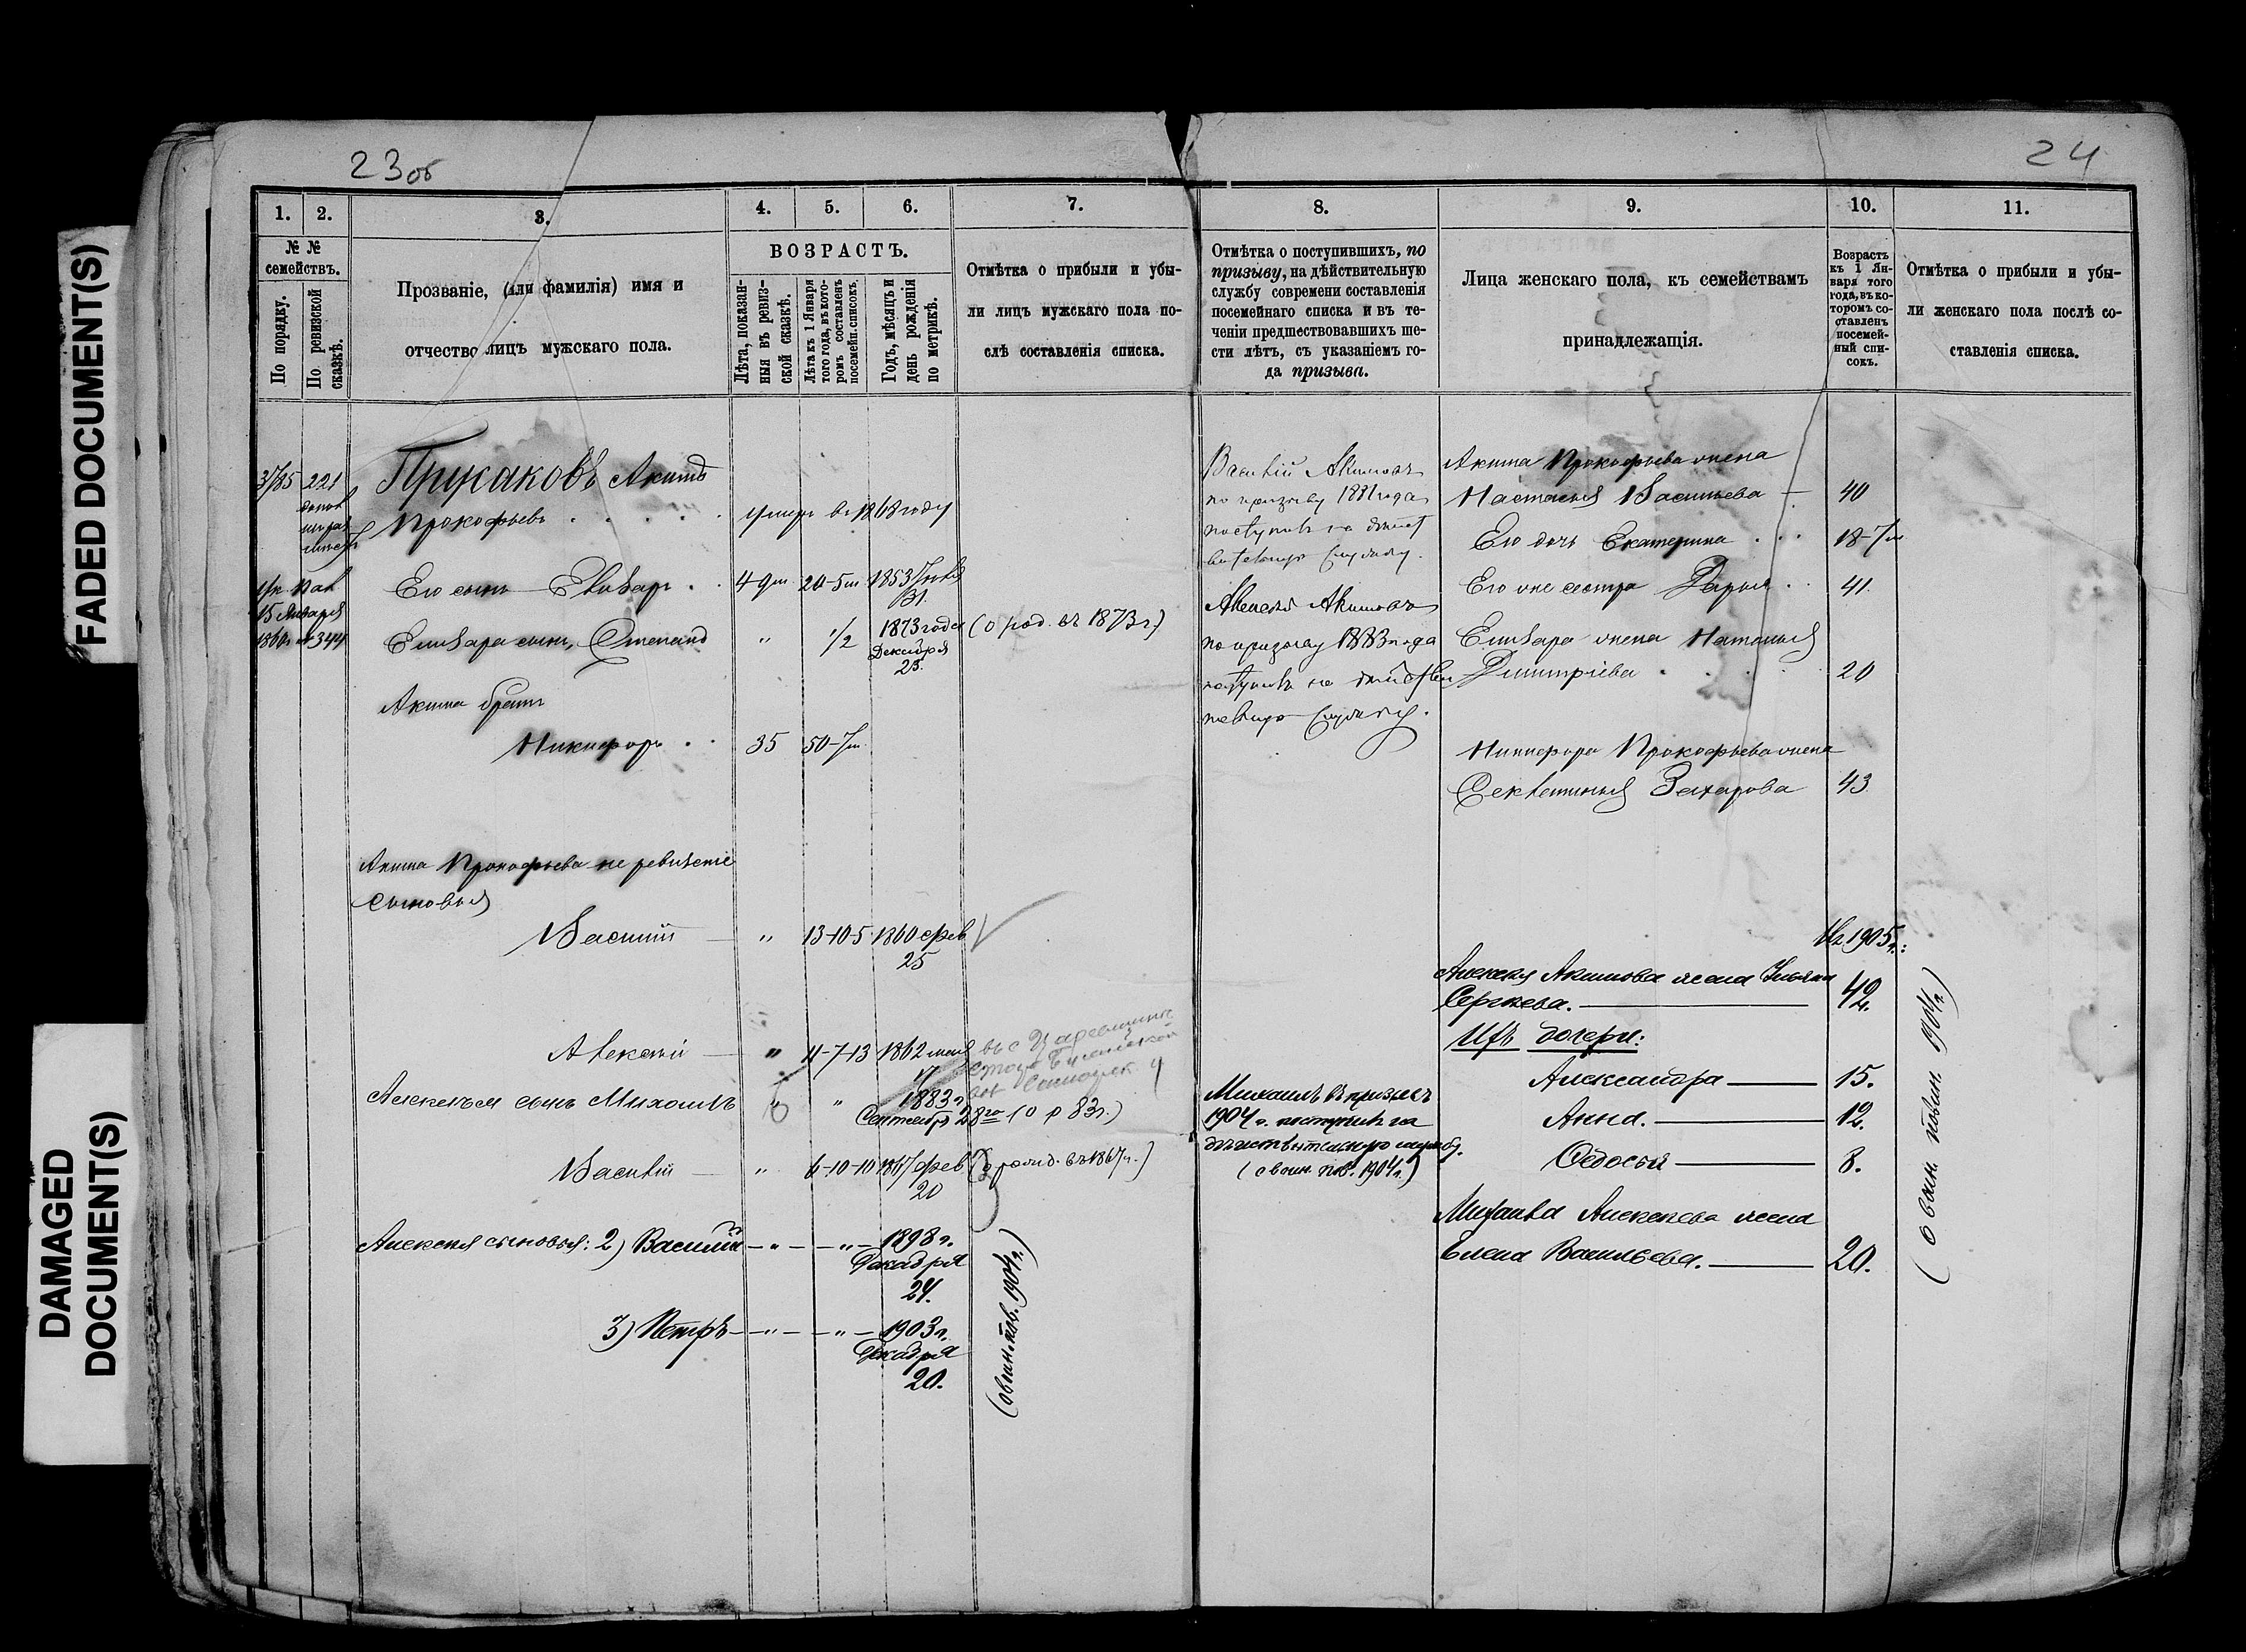 FADED DOCUMENT(S)
DAMAGED
DOCUMENT(S)
23об
24
1.
2.
3.
4.
5.
6.
7.
8.
9.
10.
11.
№ №
семействъ.
По порядку.
По ревизской
сказкѣ.
Прозваніе, (или фамилія) имя и
отчество лицъ мужскаго пола.
ВОЗРАСТЪ.
Лѣта, показан-
ныя въ ревиз-
ской сказкѣ.
Лѣта къ 1 Января
того года, въ кото-
ромъ составленъ
посемейн. списокъ.
Годъ, мѣсяцъ и
день рожденія
по метрикѣ.
Отмѣтка о прибыли и убы-
ли лицъ мужскаго пола по-
слѣ составленія списка.
Отмѣтка о поступившихъ, по
призыву, на дѣйствительную
службу современи составленія
посемейнаго списка и въ те-
ченіи предшествовавшихъ ше-
сти лѣтъ, съ указаніемъ го-
да призыва.
Лица женскаго пола, къ семействамъ
принадлежащія.
Возрастъ
къ 1 Ян-
варя того
года, въ ко-
торомъ со-
ставленъ
посемей-
ный спи-
сокъ.
Отмѣтка о прибыли и убы-
ли женскаго пола послѣ со-
ставленія списка.
221
Акимъ
Прокофьевъ
умеръ въ 1868 году
15 Января
№ 344
Его сынъ
4-9м
20-5м
1853
31.
Елизара сынъ, Степанъ
"
1/2
1873 года
Декабря
25.
(о род. въ 1873 г.)
Акима братъ
Никифоръ
35
50-7м
Акима Прокофьева не ревизскіе
сыновья
Василий
"
13-10-5
1860 фев
25
Алексѣй
"
11-7-13
1862
17
Алексѣя сынъ Михаилъ
"
"
1883 г.
Сентября 28го
Василій
"
6-10-10
1867 фев
20
въ 1867 г.)
Алексѣя сыновья: 2) Василій
- " -
- " -
1898 г.
Декабря
24.
3) Петръ
- " -
- " -
1903 г.
Декабря
20.
(о воин. пов. 1904 г.)
Василій Акимовъ
по призыву 1881 года
поступилъ на дѣйст
вительную службу.
Алексѣй Акимовъ
по призыву 1883 года
поступилъ на
службу.
Михаилъ въ призывъ
1904 г. поступилъ на
дѣйствительную службу.
(о воин. пов. 1904 г.)
Акима Прокофьева жена
Настасья Васильева
40
Его дочь Екатерина
18-7м
Его же сестра Дарья
41.
Елизара жена Наталья
Дмитріева
20
Никифора Прокофьева жена
Захарова
43
Къ 1905 г.:
Алексѣя Акимова жена
Сергѣева.
42.
Ихъ дочери:
Александра
15.
Анна.
12.
Ѳедосья
8.
Михаила Алексѣева жена
Елена Васильева.
20.
(о воин. повин. 1904 г.)